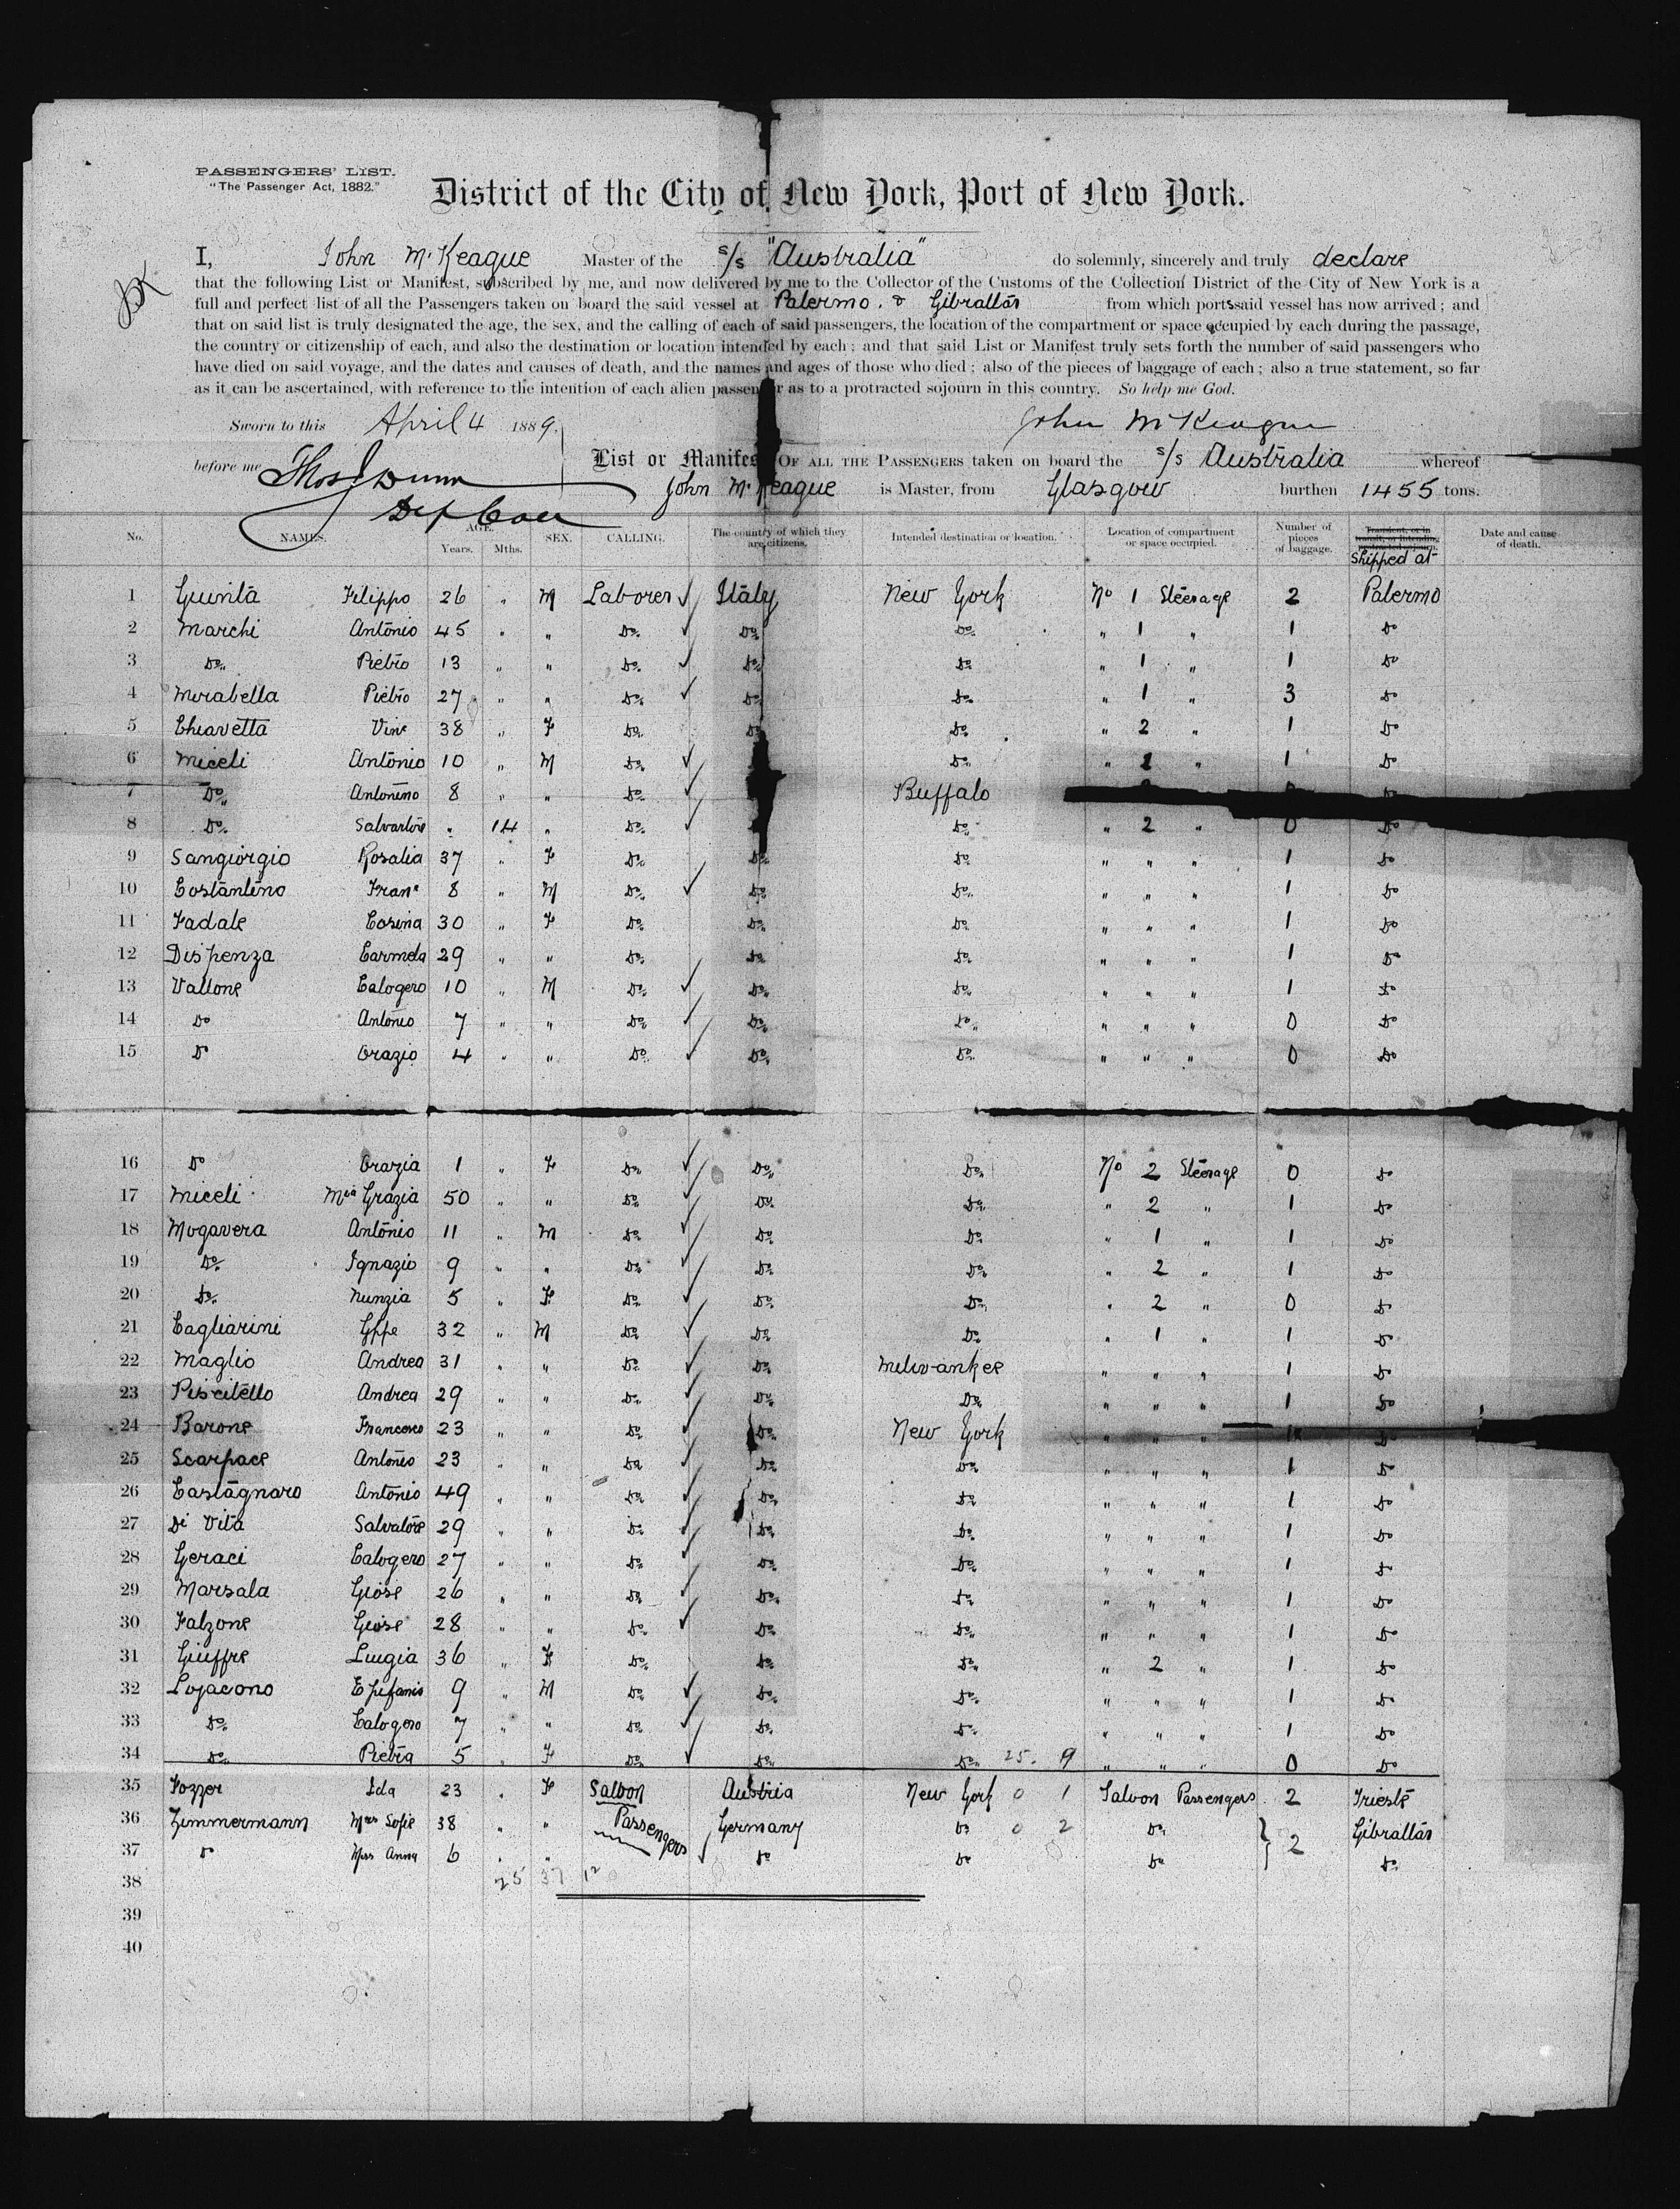 PASSENGERS' LIST.
"The Passenger Act, 1882."
District of the City of New York, Port of New York.
I, John McKeague Master of the s/s "Australia" do solemnly, sincerely and truly declare
that the following List or Manifest, subscribed by me, and now delivered by me to the Collector of the Customs of the Collection District of the City of New York is a
full and perfect list of all the Passengers taken on board the said vessel at Palermo. & Gibraltar from which ports said vessel has now arrived; and
that on said list is truly designated the age, the sex, and the calling of each of said passengers, the location of the compartment or space occupied by each during the passage,
the country or citizenship of each, and also the destination or location intended by each; and that said List or Manifest truly sets forth the number of said passengers who
have died on said voyage, and the dates and causes of death, and the names and ages of those who died; also of the pieces of baggage of each; also a true statement, so far
as it can be ascertained, with reference to the intention of each alien passenger as to a protracted sojourn in this country. So help me God.
Sworn to this April 4 1889. John McKeague
before me Thos J Dunn List or Manifest OF ALL THE PASSENGERS taken on board the s/s Australia whereof
Dep Coll John McKeague is Master, from Glasgow burthen 1455 tons.
No. NAMES. AGE. Years. Mths. SEX. CALLING. The country of which they are citizens. Intended destination or location. Location of compartment or space occupied. Number of pieces of baggage. Shipped at Date and cause of death.
1 Giunta Filippo 26 " M Laborer Italy New York No 1 Steerage 2 Palermo
2 Marchi Antonio 45 " " Do Do Do " 1 " 1 Do
3 Do Pietro 13 " " Do Do Do " 1 " 1 Do
4 Mirabella Pietro 27 " " Do Do Do " 1 " 3 Do
5 Chiavetta Vinc 38 " F Do Do Do " 2 " 1 Do
6 Miceli Antonio 10 " M Do Do " 2 " 1 Do
7 Do Antonino 8 " " Do Buffalo
8 Do Salvatore " 14 " Do Do " 2 " 0 Do
9 Sangiorgio Rosalia 37 " F Do Do Do " " " 1 Do
10 Costantino Franc 8 " M Do Do Do " " " 1 Do
11 Fadale Cosina 30 " F Do Do Do " " " 1 Do
12 Dispenza Carmela 29 " " Do Do Do " " " 1 Do
13 Vallone Calogero 10 " M Do Do Do " " " 1 Do
14 Do Antonio 7 " " Do Do Do " " " 0 Do
15 Do Orazio 4 " " Do Do Do " " " 0 Do
16 Do Orazia 1 " F Do Do Do No 2 Steerage 0 Do
17 Miceli Mia Grazia 50 " " Do Do Do " 2 " 1 Do
18 Mogavera Antonio 11 " M Do Do Do " 1 " 1 Do
19 Do Ignazio 9 " " Do Do Do " 2 " 1 Do
20 Do Nunzia 5 " F Do Do Do " 2 " 0 Do
21 Cagliarini Gppe 32 " M Do Do Do " 1 " 1 Do
22 Maglio Andrea 31 " " Do Do Milwankee " " " 1 Do
23 Piscitello Andrea 29 " " Do Do Do " " " 1 Do
24 Barone Francesco 23 " " Do Do New York " " " 1 Do
25 Scarpace Antonio 23 " " Do Do Do " " " 1 Do
26 Castagnaro Antonio 49 " " Do Do Do " " " 1 Do
27 Di Vita Salvatore 29 " " Do Do Do " " " 1 Do
28 Geraci Calogero 27 " " Do Do Do " " " 1 Do
29 Marsala Giose 26 " " Do Do Do " " " 1 Do
30 Falzone Giose 28 " " Do Do Do " " " 1 Do
31 Giuffre Luigia 36 " F Do Do Do " 2 " 1 Do
32 Lojacono Epifanio 9 " M Do Do Do " " " 1 Do
33 Do Calogero 7 " " Do Do Do " " " 1 Do
34 Do Pietra 5 " F Do Do Do 25. 9 " " " 0 Do
35 Fozzer Ida 23 " F Saloon Austria New York 0 1 Saloon Passengers 2 Trieste
36 Zimmermann Mrs Sofie 38 " " Passengers Germany Do 0 2 Do 2 Gibraltar
37 Do Miss Anna 6 " " Do Do Do Do
38 25 37 12
39
40